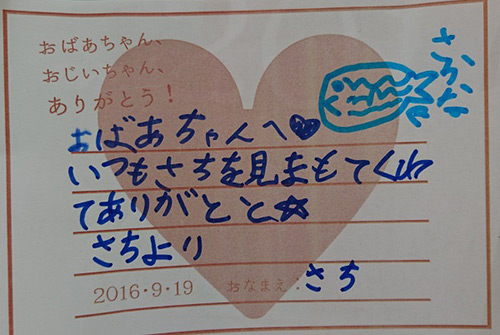 おばあちゃん、
おじいちゃん、
ありがとう！
さかな
おばあちゃんへ♥
いつもさちを見まもてくれ
てありがとと☆
さちより
2016・9・19 おなまえ：さち